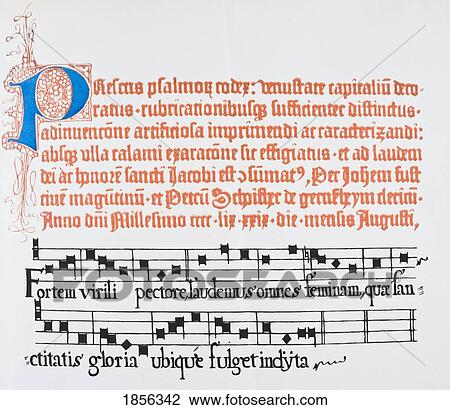 PResens psalmorum codex: venustate capitaliū deco-
ratus · rubricationibusqz sufficienter distinctus ·
adinuencōne artificiosa imprimendi ac caracterizandi:
absqz vlla calami exaracōne sic effigiatus · et ad laudem
dei ac honorē sancti Jacobi est ɔsūmatꝰ, Per Johēm fust
ciuē magūtinū · et Petrū Schoifher de gernszheym clericū ·
Anno dn̄i Millesimo cccc · lix · xxix · die · mensis Augusti,
Fortem virili pectore, laudemus omnes feminam, quæ san=
=ctitatis gloria ubique fulget indyta
© Fotosearch
1856342 www.fotosearch.com